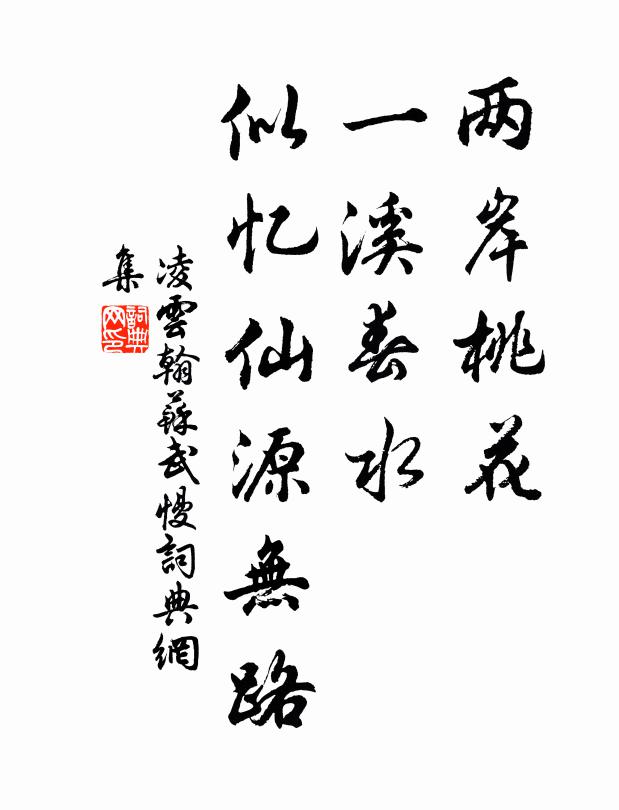 两岸桃花
一溪春水
似忆仙源無路
凌雲翰蘇武慢詞典網
集
詞典
网印